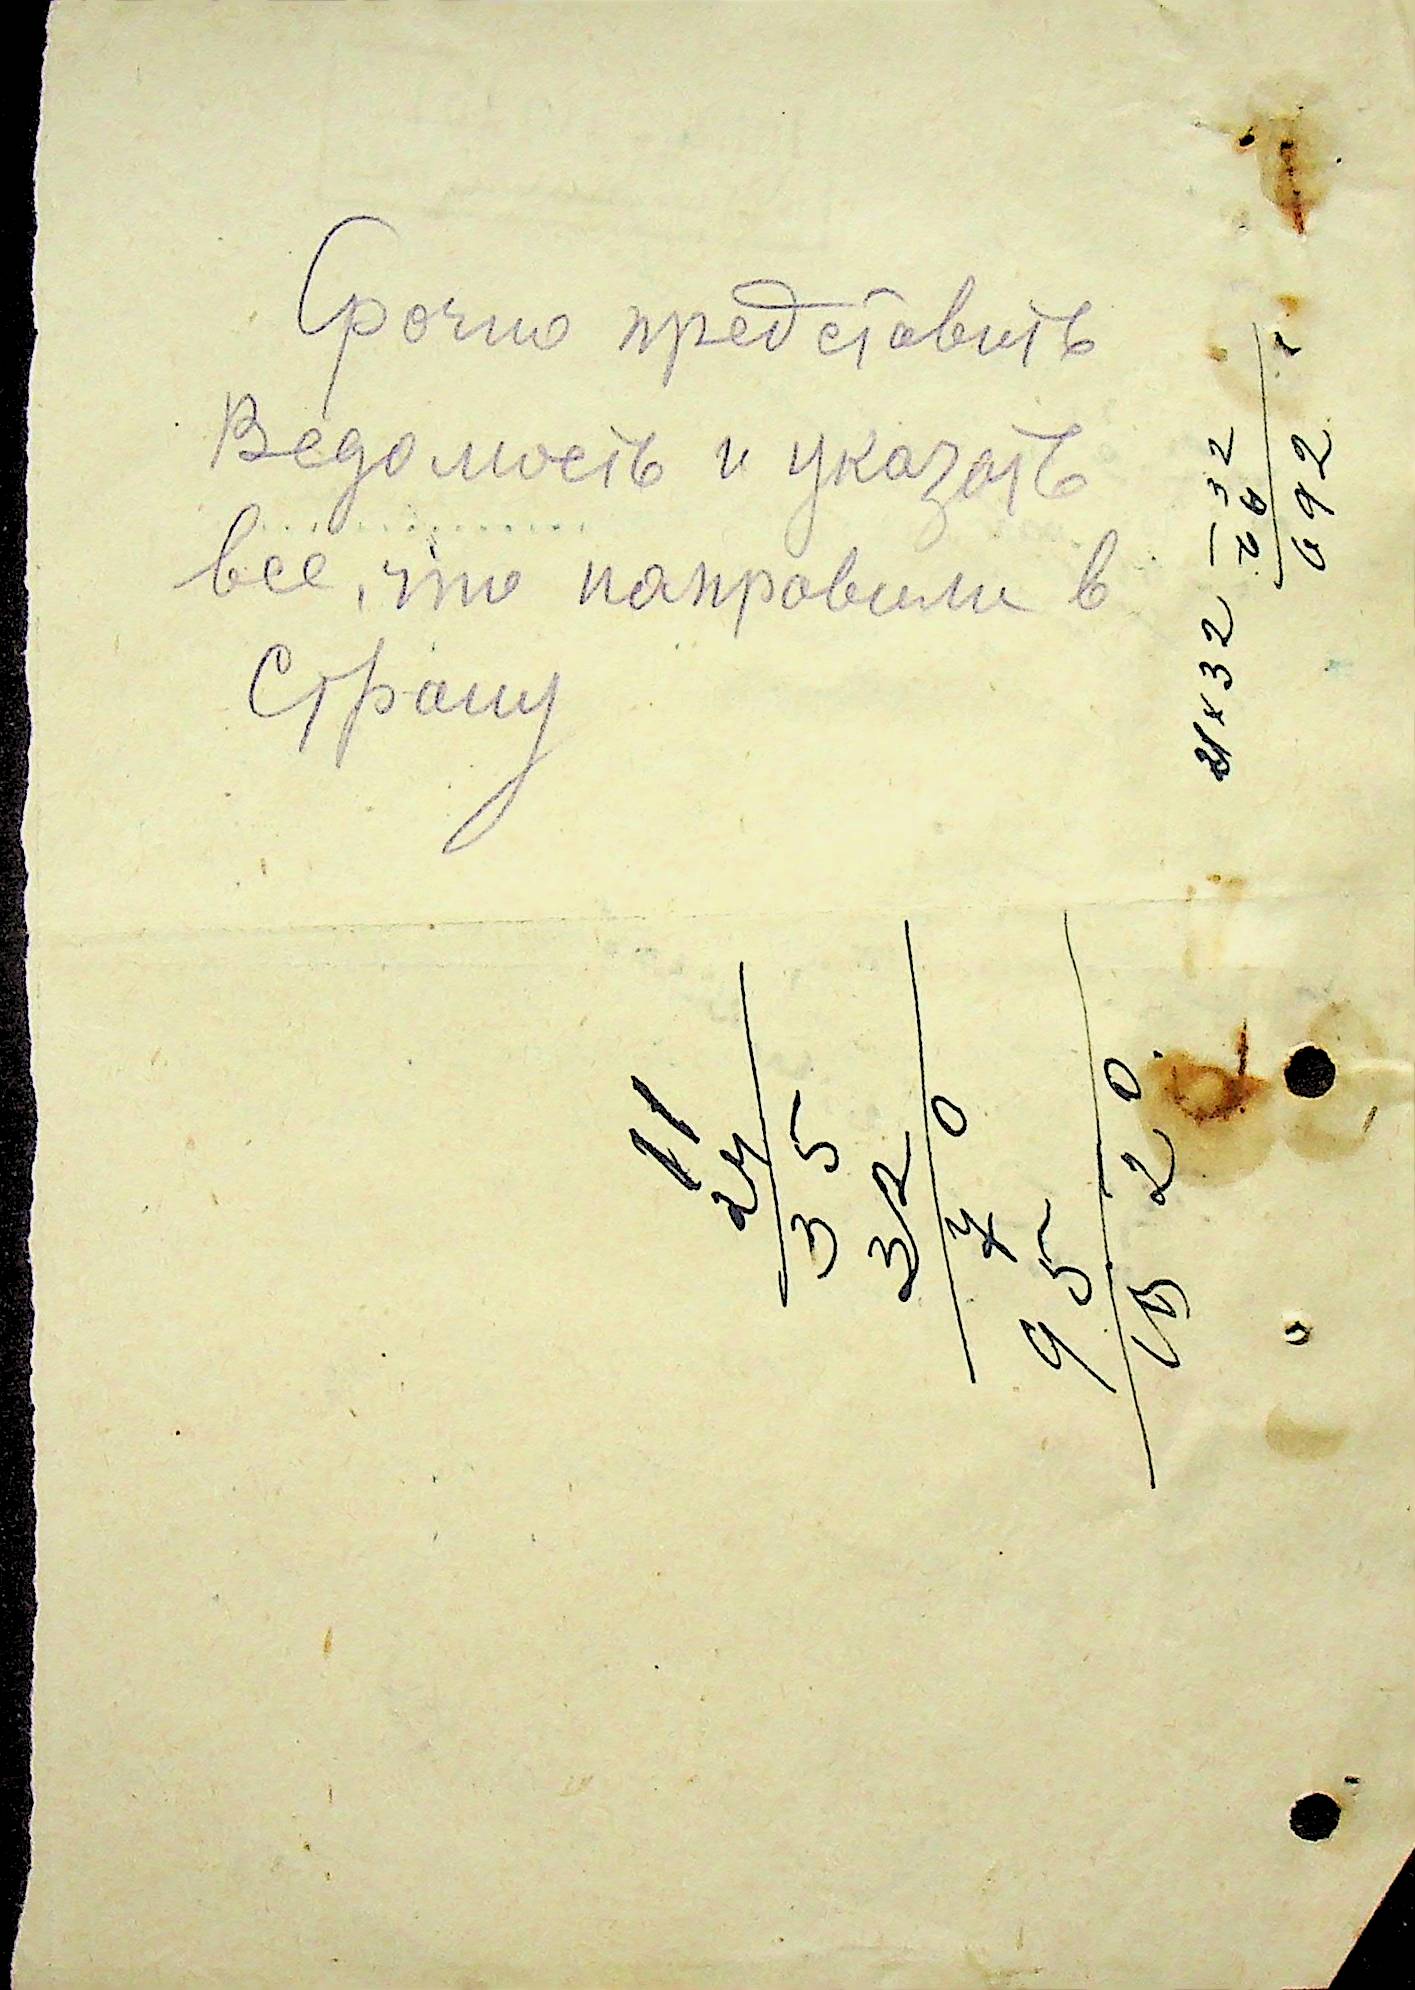 Срочно представить
Ведомость и указать
все, что направили в
Страну
21 x 32 –
32
692
11
24
35
32
0
95
20